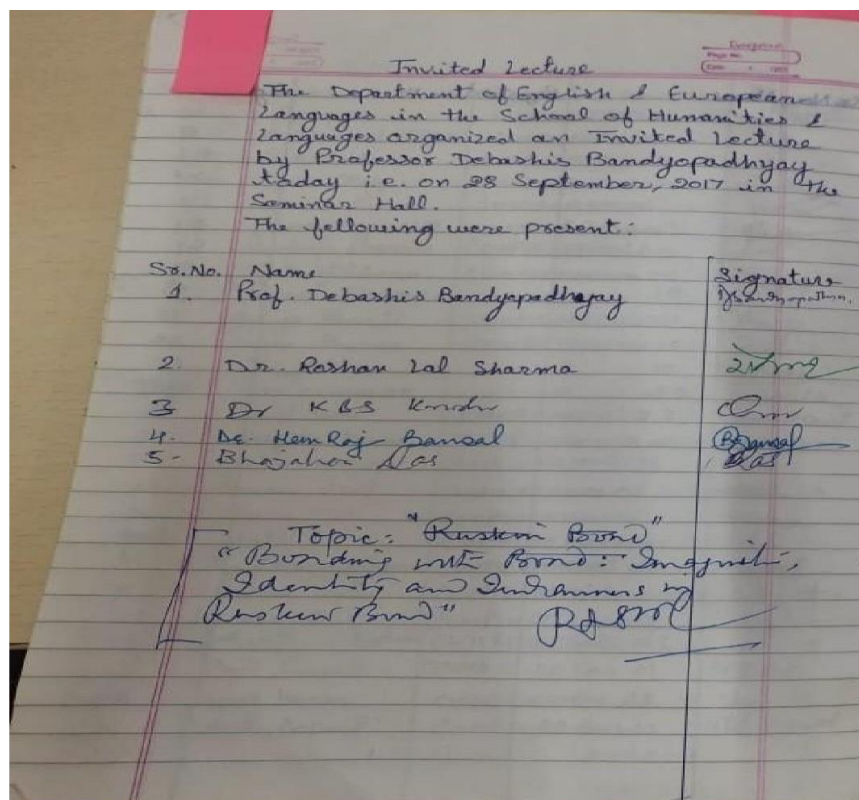 Invited Lecture
The Department of English & European
Languages in the School of Humanities &
Languages organized an Invited Lecture
by Professor Debashis Bandyopadhyay
today i.e. on 28 September, 2017 in the
Seminar Hall.
The following were present:
Sr. No. Name Signature
1. Prof. Debashis Bandyopadhyay
2. Dr. Roshan Lal Sharma
3 Dr KBS
4. Dr. Hem Raj Bansal Bansal
5- Das Das
Topic: "Ruskin Bond"
"Bonding with Bond:
Identity and in
Ruskin Bond"